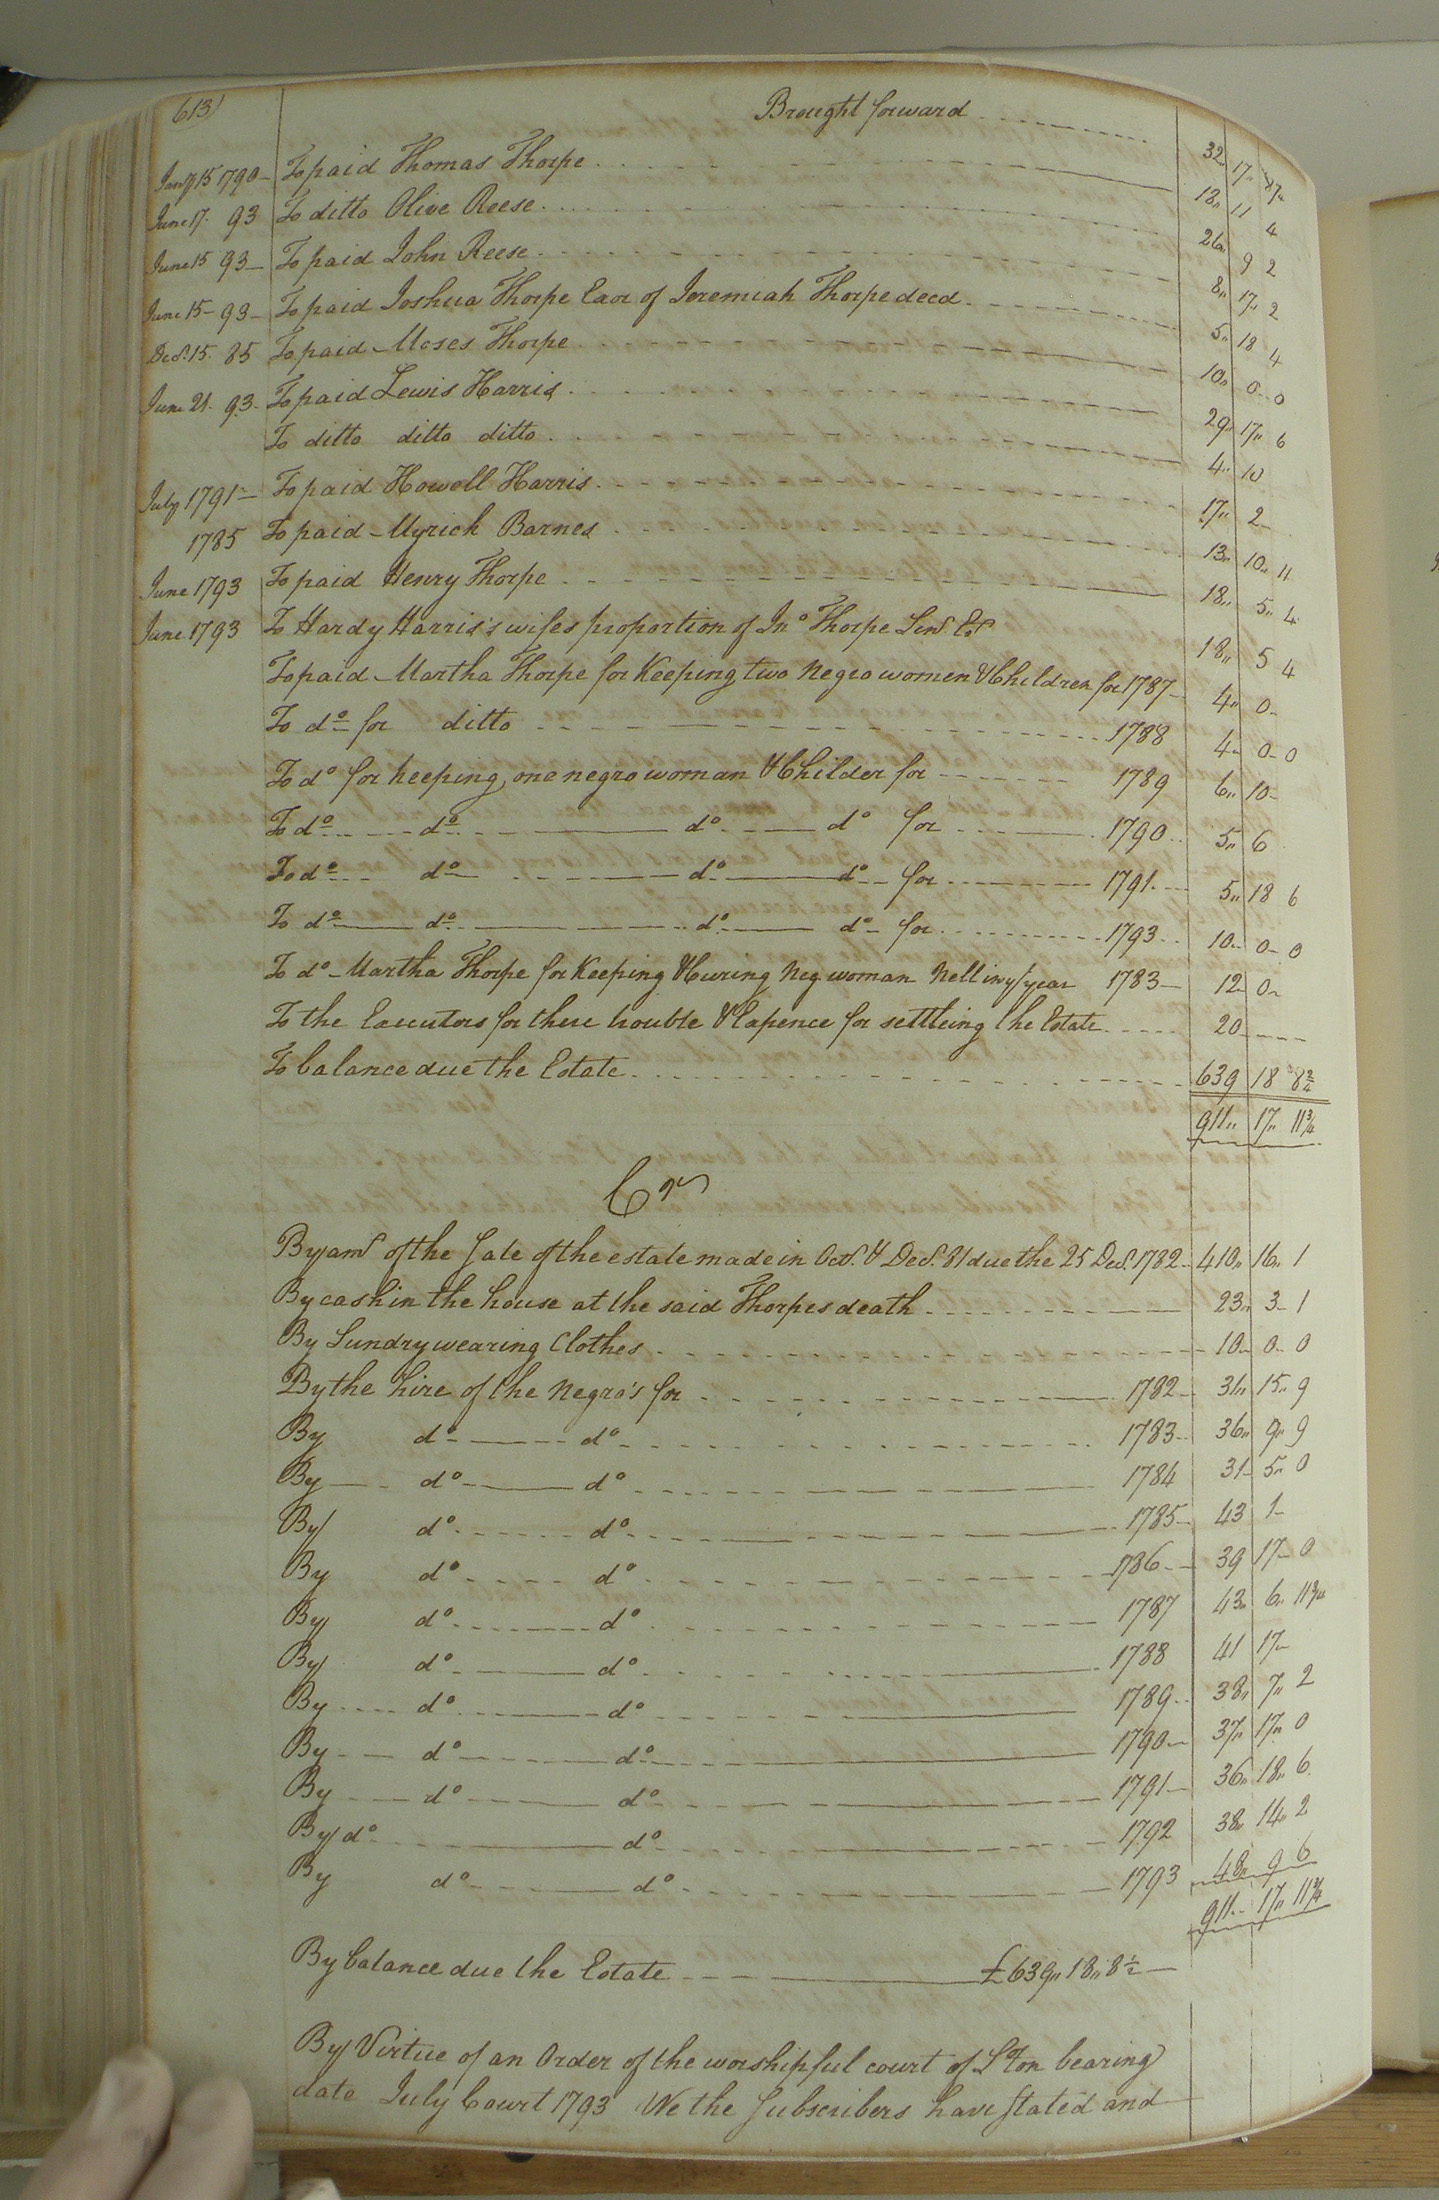 613)
Brought forward 32 17 8½
Jany 15 1790 To paid Thomas Thorpe 18 11 4
June 17. 93 To ditto Olive Reese 26 9 2
June 15 93 To paid John Reese 8 17 2
June 15 93 To paid Joshua Thorpe Exor of Jeremiah Thorpe decd 5 18 4
Decr. 15. 85 To paid Moses Thorpe 10 0 0
June 21. 93 To paid Lewis Harris 29 17 6
To ditto ditto ditto 4 10
July 1791 To paid Howell Harris 17 2
1785 To paid Myrick Barnes 13 10 11
June 1793 To paid Henry Thorpe 18 5 4
June 1793 To Hardy Harris's wifes proportion of Jno Thorpe Senr. Est 18 5 4
To paid Martha Thorpe for Keeping two Negro women & Children for 1787 4 0
To do for ditto 1788 4 0 0
To do for keeping one negro woman & Childer for 1789 6 10
To do do do do for 1790 5 6
To do do do do for 1791 5 18 6
To do do do do for 1793 10 0 0
To do Martha Thorpe for Keeping & Curing Neg. woman Nell in ye year 1783 12 0
To the Executors for there trouble & Expence for settleing the Estate 20
To balance due the Estate 639 18 8 2/4
911 17 11¾
Cr
By amt of the Sale of the estate made in Octr. & Decr. 81 due the 25 Decr. 1782 410 16 1
By cash in the house at the said Thorpes death 23 3 1
By Sundry wearing Clothes 10 0 0
By the hire of the Negro's for 1782 31 15 9
By do do 1783 36 9 9
By do do 1784 31 5 0
By do do 1785 43 1
By do do 1786 39 17 0
By do do 1787 43 6 11¾
By do do 1788 41 17
By do do 1789 38 7 2
By do do 1790 37 17 0
By do do 1791 36 18 6
By do do 1792 38 14 2
By do do 1793 48 9 6
911 17 11¾
By balance due the Estate £639 18 8½
By Virtue of an Order of the worshipful court of S.ton bearing
date July Court 1793 We the Subscribers have stated and